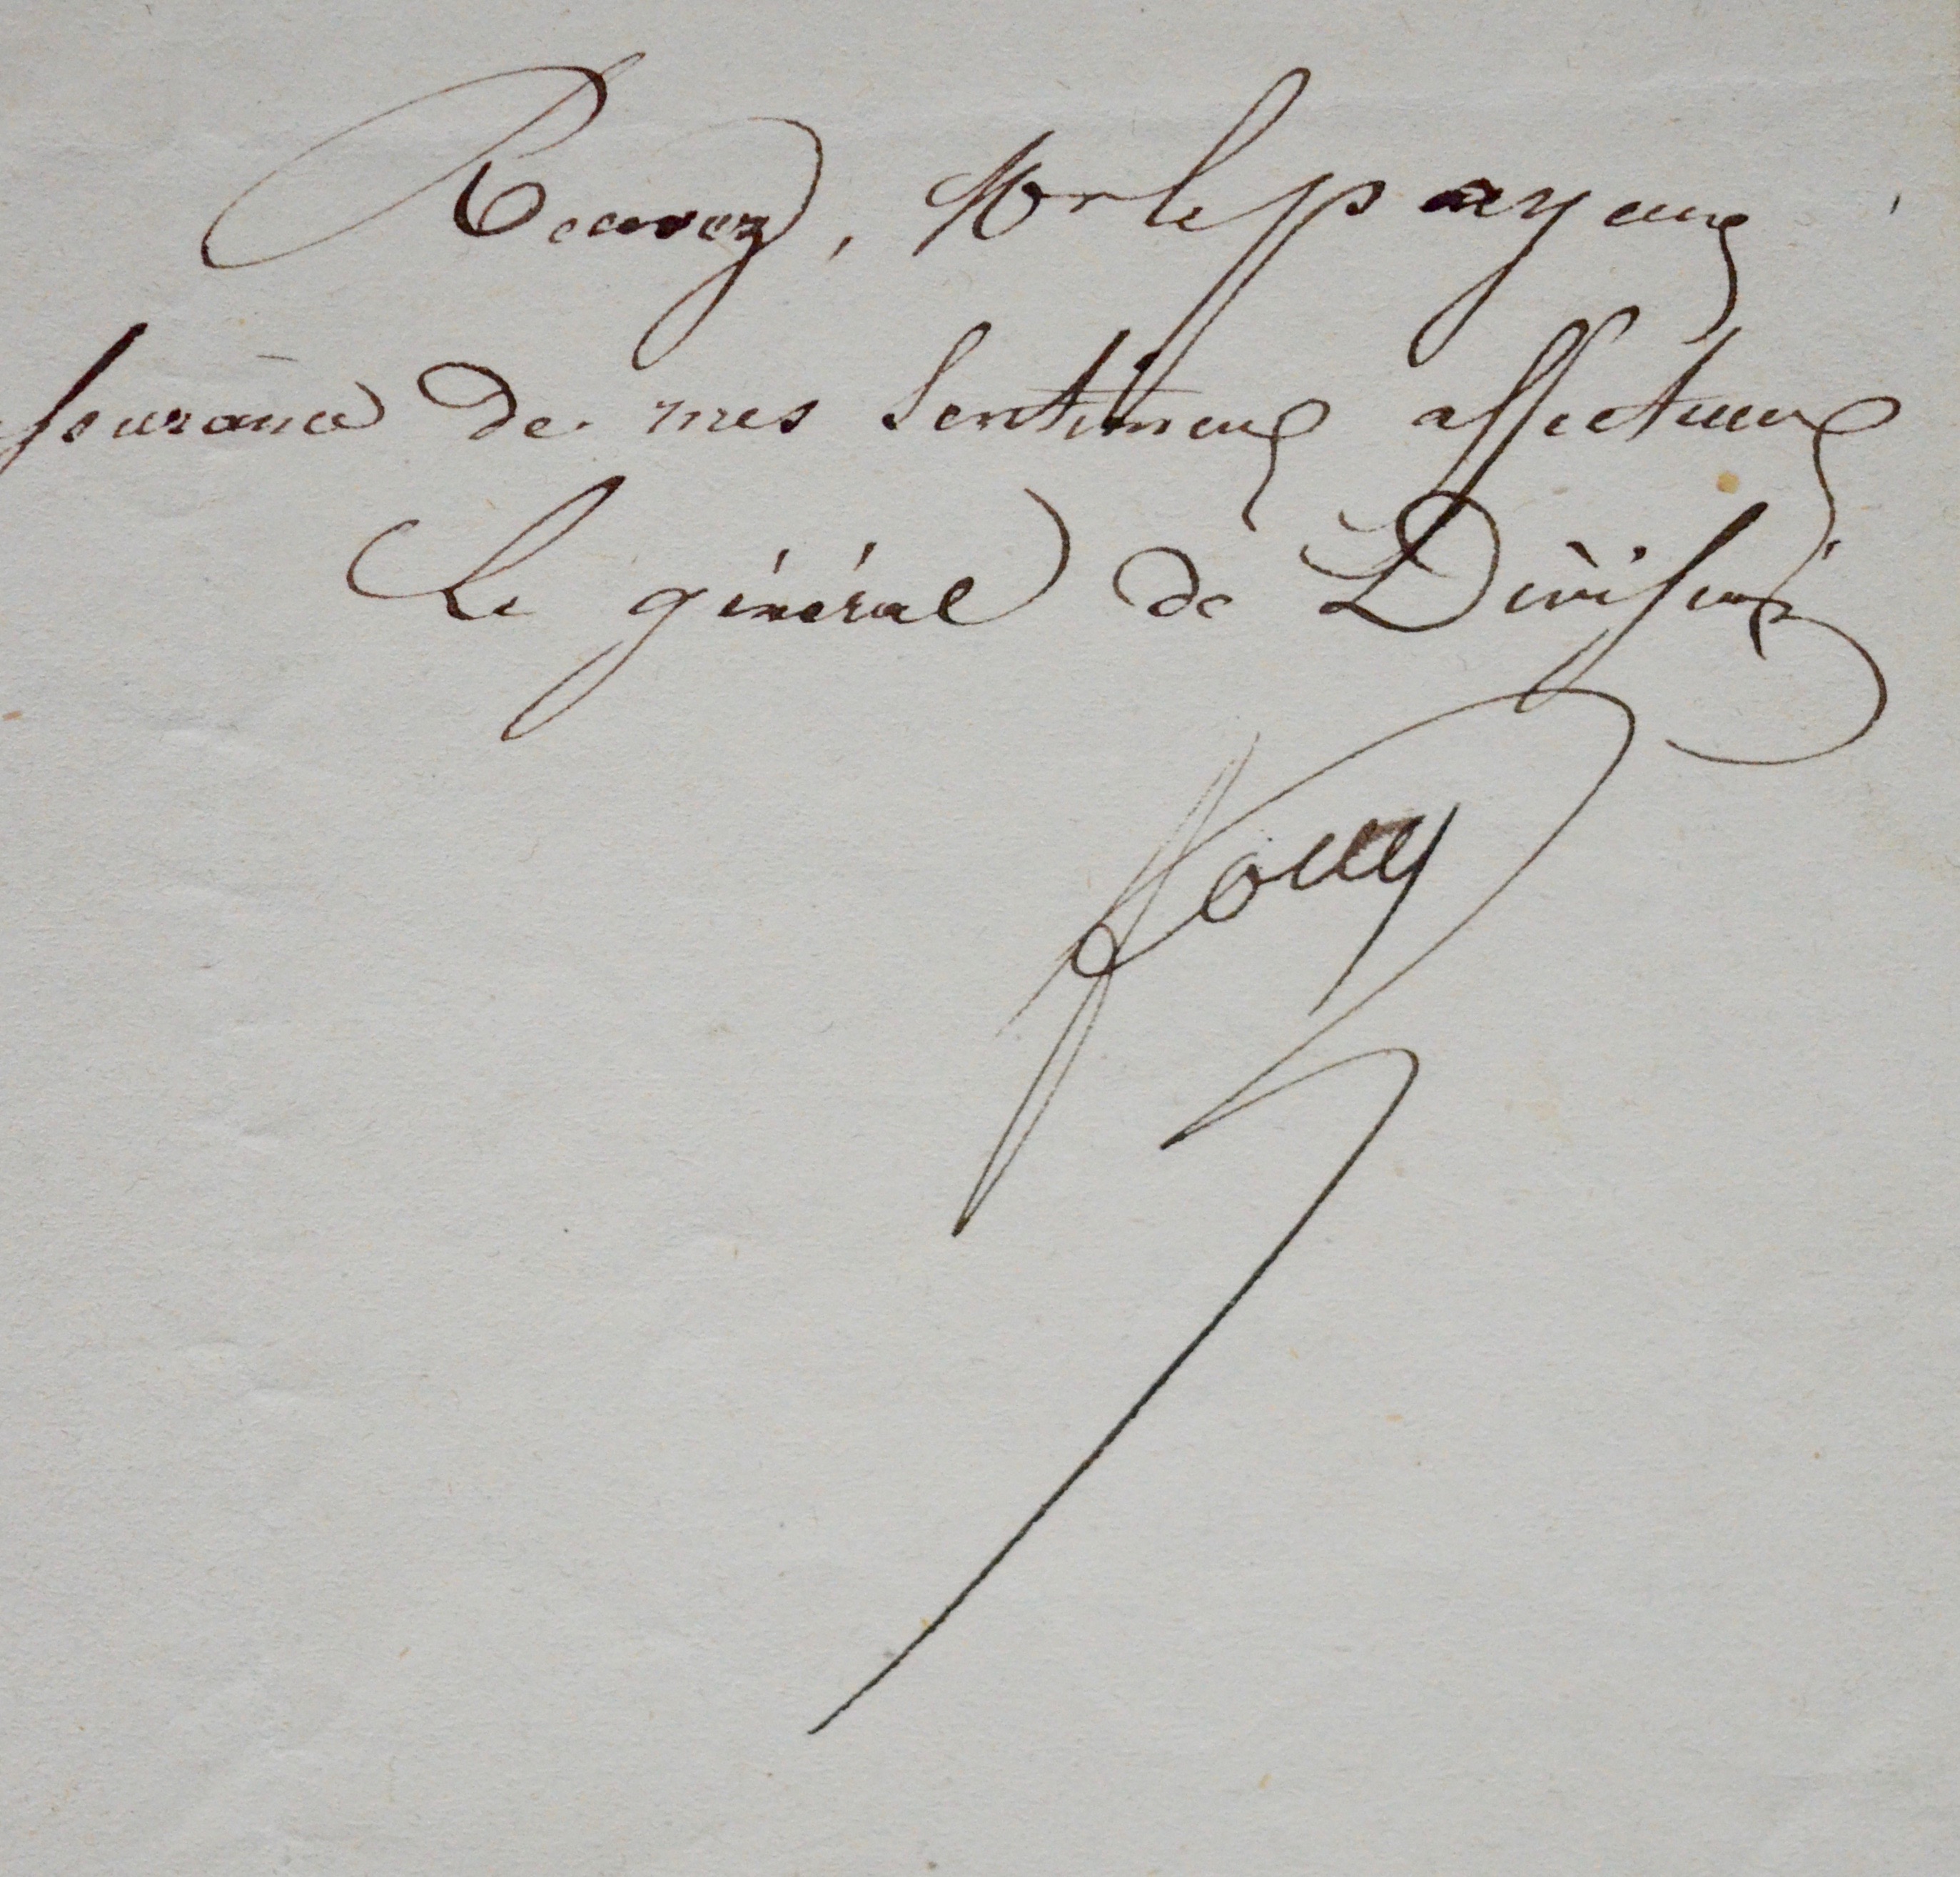 Recevez, Mr le payeur
ssurance de mes sentimens affectueux
Le général de Division
Foy